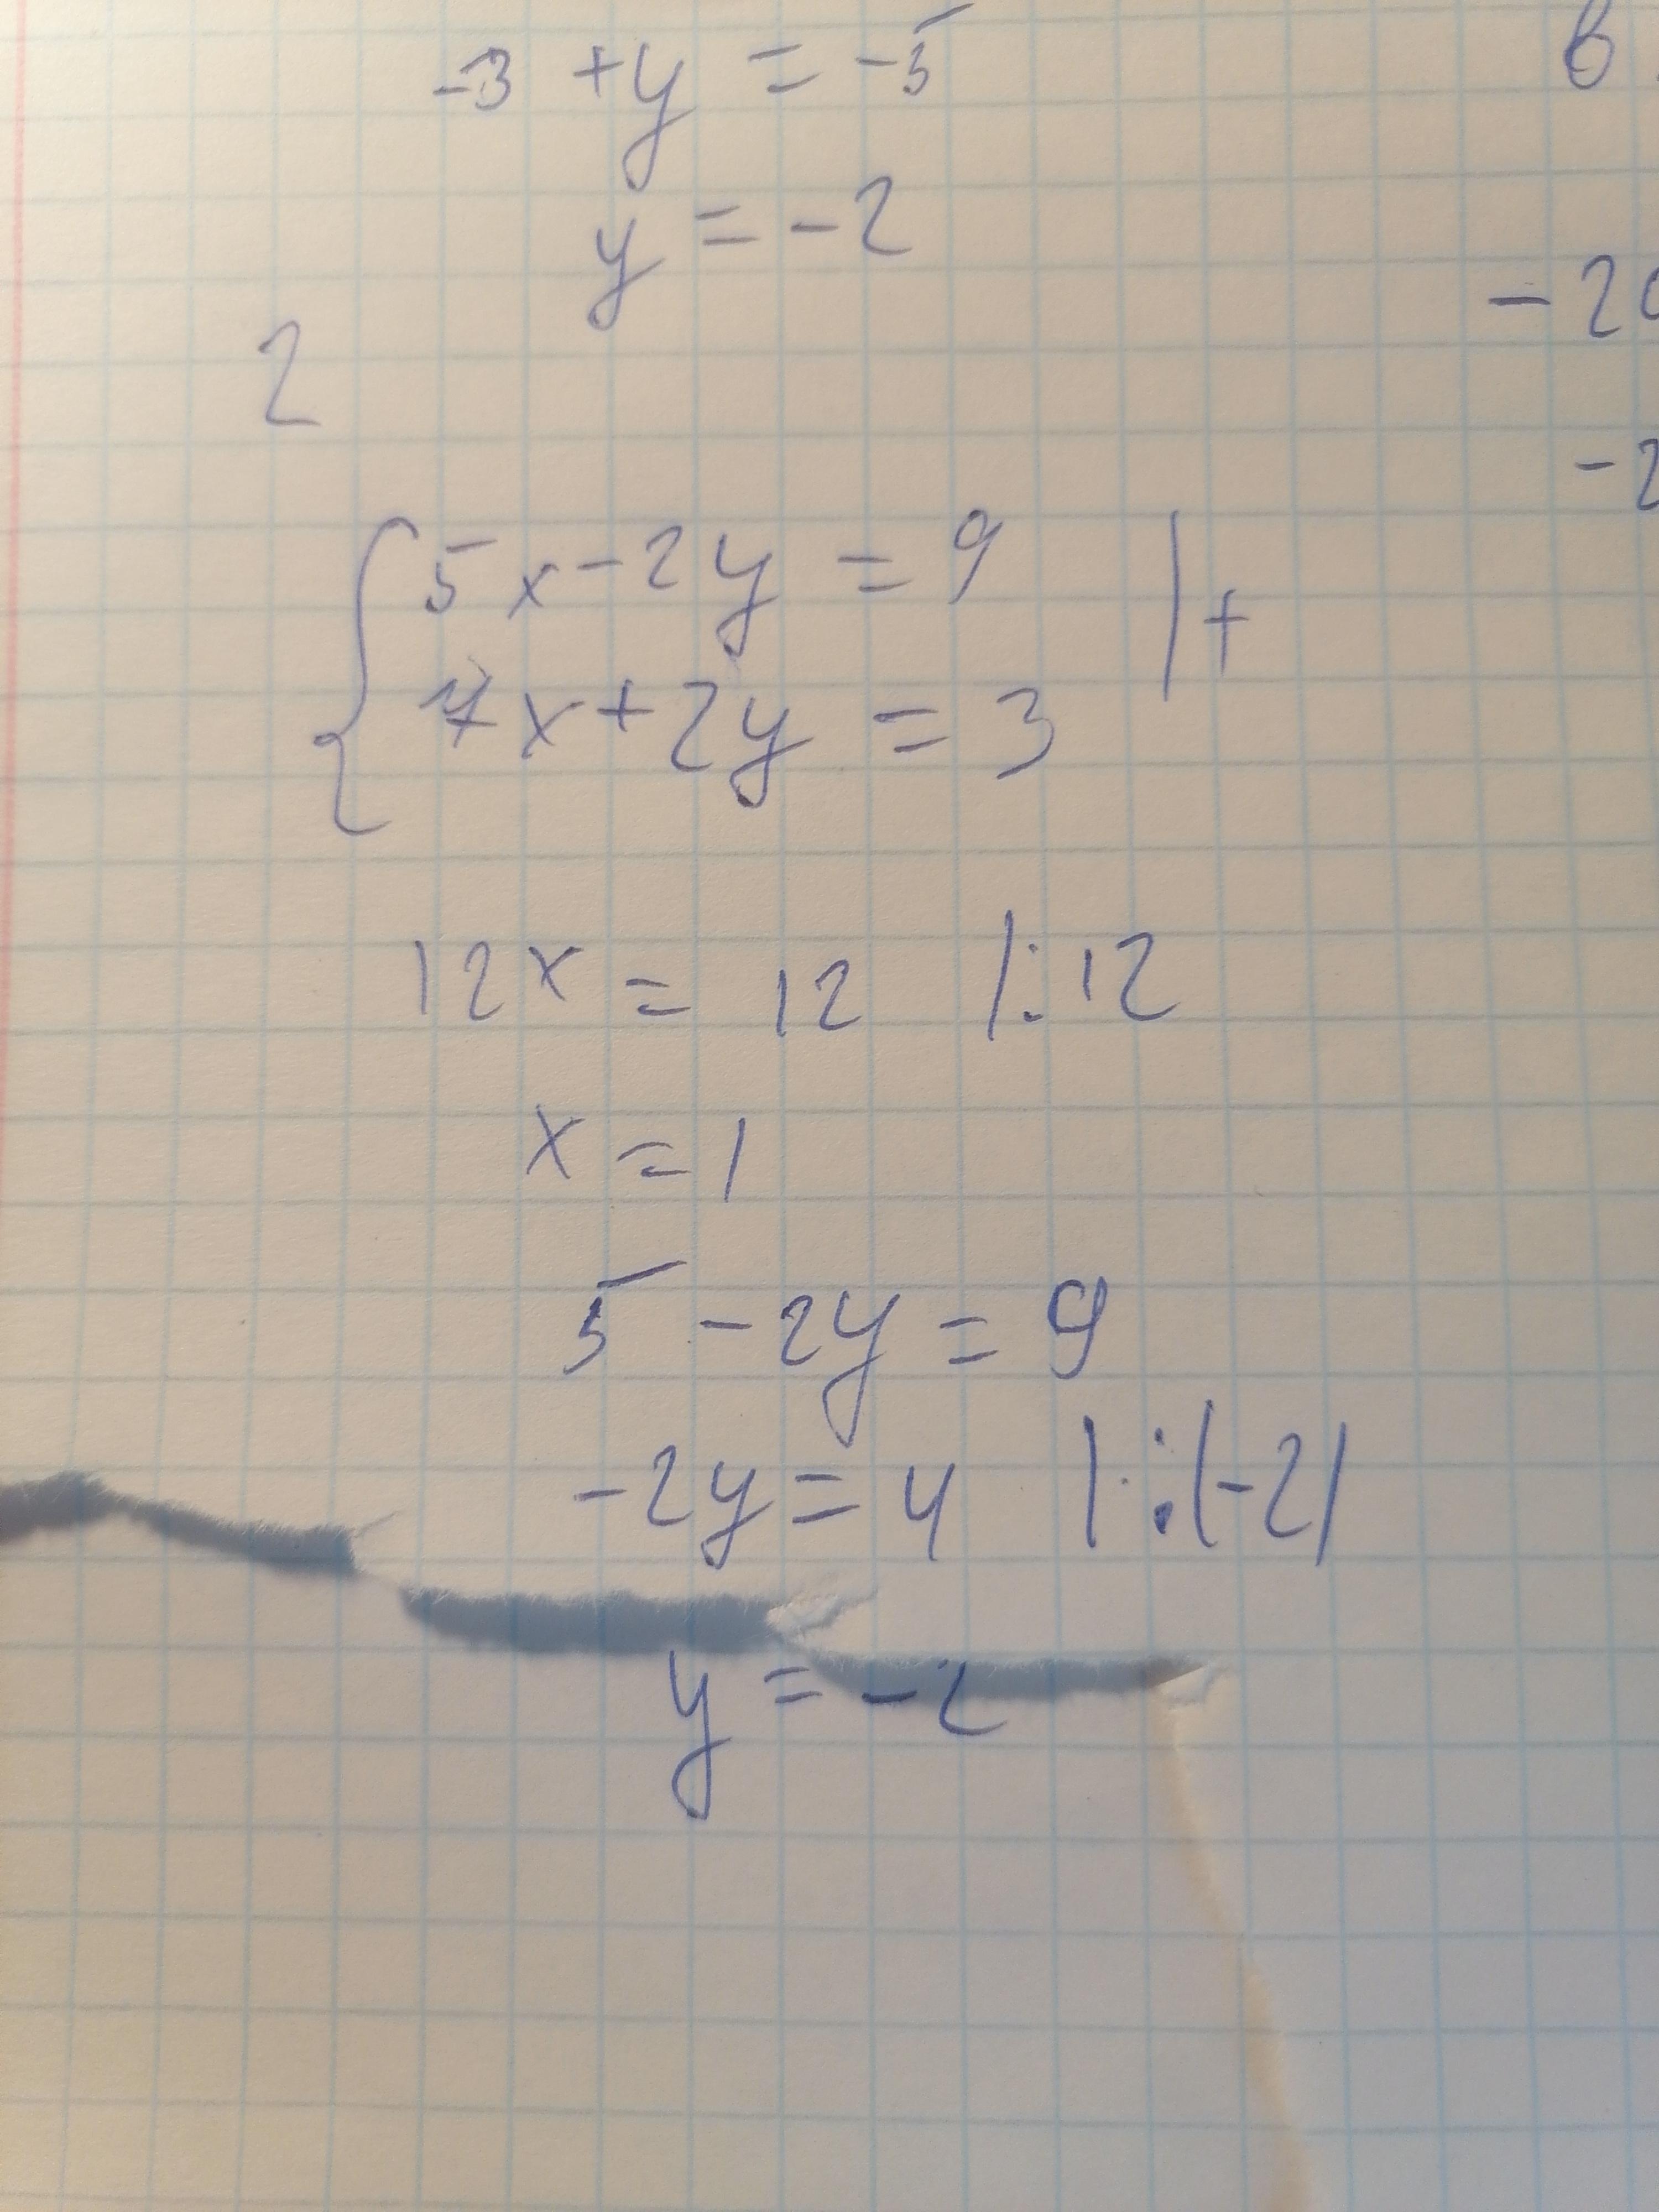 -3 + y = -5
y = -2
2
5x - 2y = 9 | +
7x + 2y = 3
12x = 12 |:12
x = 1
5 - 2y = 9
-2y = 4 |:(-2)
y = -2
-2